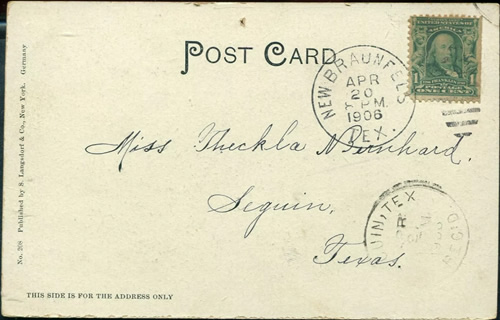 POST CARD
UNITED STATES OF AMERICA
1 1
POSTAGE
ONE CENT
NEW BRAUNFELS
APR
20
PM.
1906
TEX.
Miss Theckla
Seguin,
Texas.
UIN, TEX
No. 208 Published by S. Langsdorf & Co., New York. Germany
THIS SIDE IS FOR THE ADDRESS ONLY